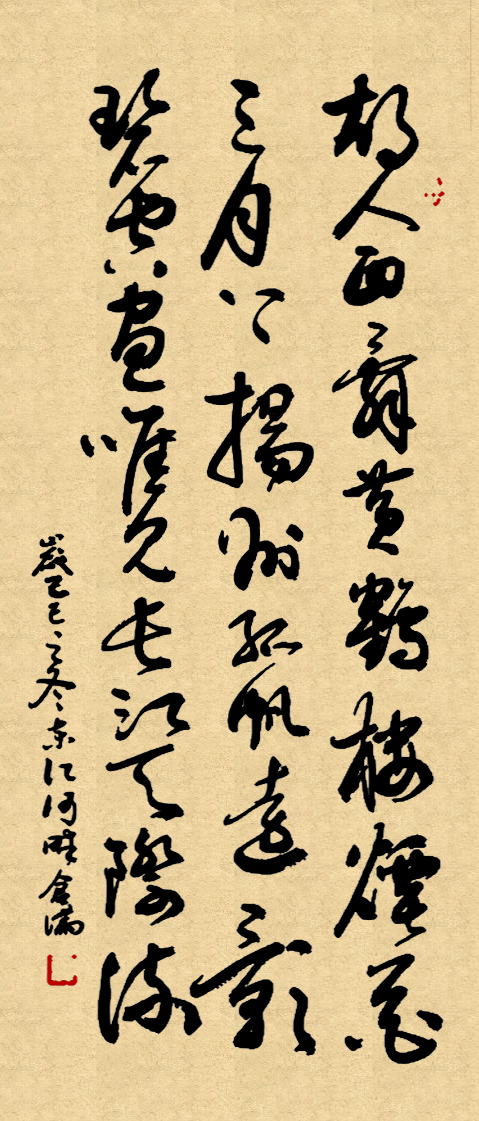 故人西辭黃鶴樓煙花
三月下揚州孤帆遠影
碧空盡唯見長江天際流
歲乙巳之冬東江河畔